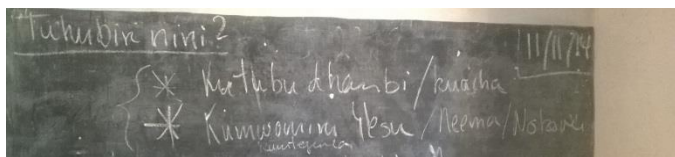 Tuhubiri nini?
11/11/14
* Kutubu dhambi/kuacha
* Kumwamini Yesu/Neema/